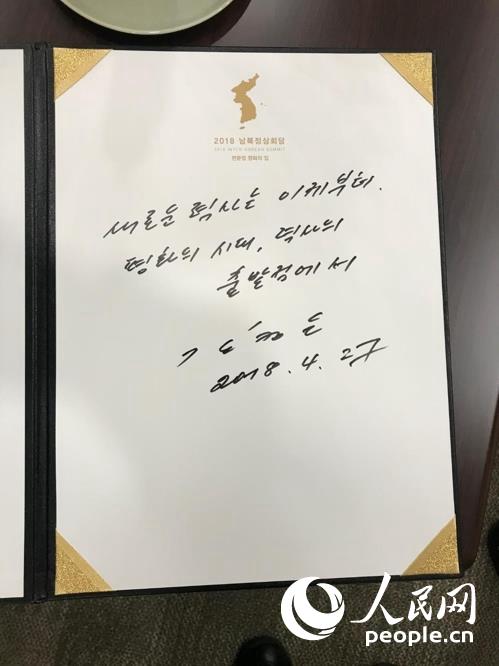 2018 남북정상회담
2018 INTER-KOREAN SUMMIT
판문점 평화의 집
새로운 력사는 이제부터.
평화의 시대, 력사의
출발점에서
김정은
2018.4.27
人民网
people.cn